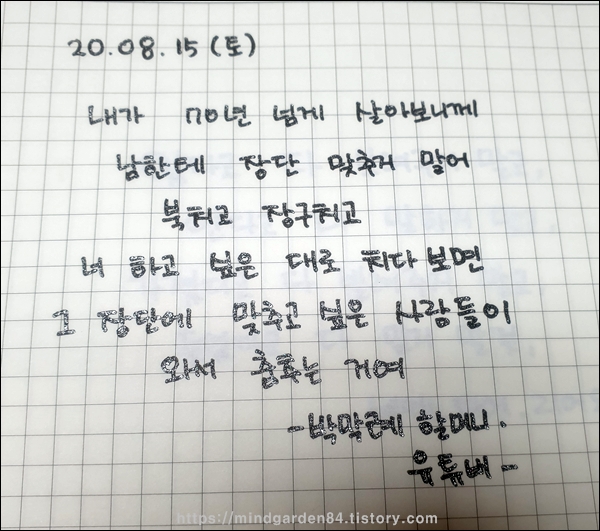 20.08.15 (토)
내가 70년 넘게 살아보니께
남한테 장단 맞추거 말어
북치고 장구치고
너 하고 싶은 대로 치다 보면
그 장단에 맞추고 싶은 사람들이
와서 춤추는 거여
-박막례 할머니.
유튜버-
https://mindgarden84.tistory.com